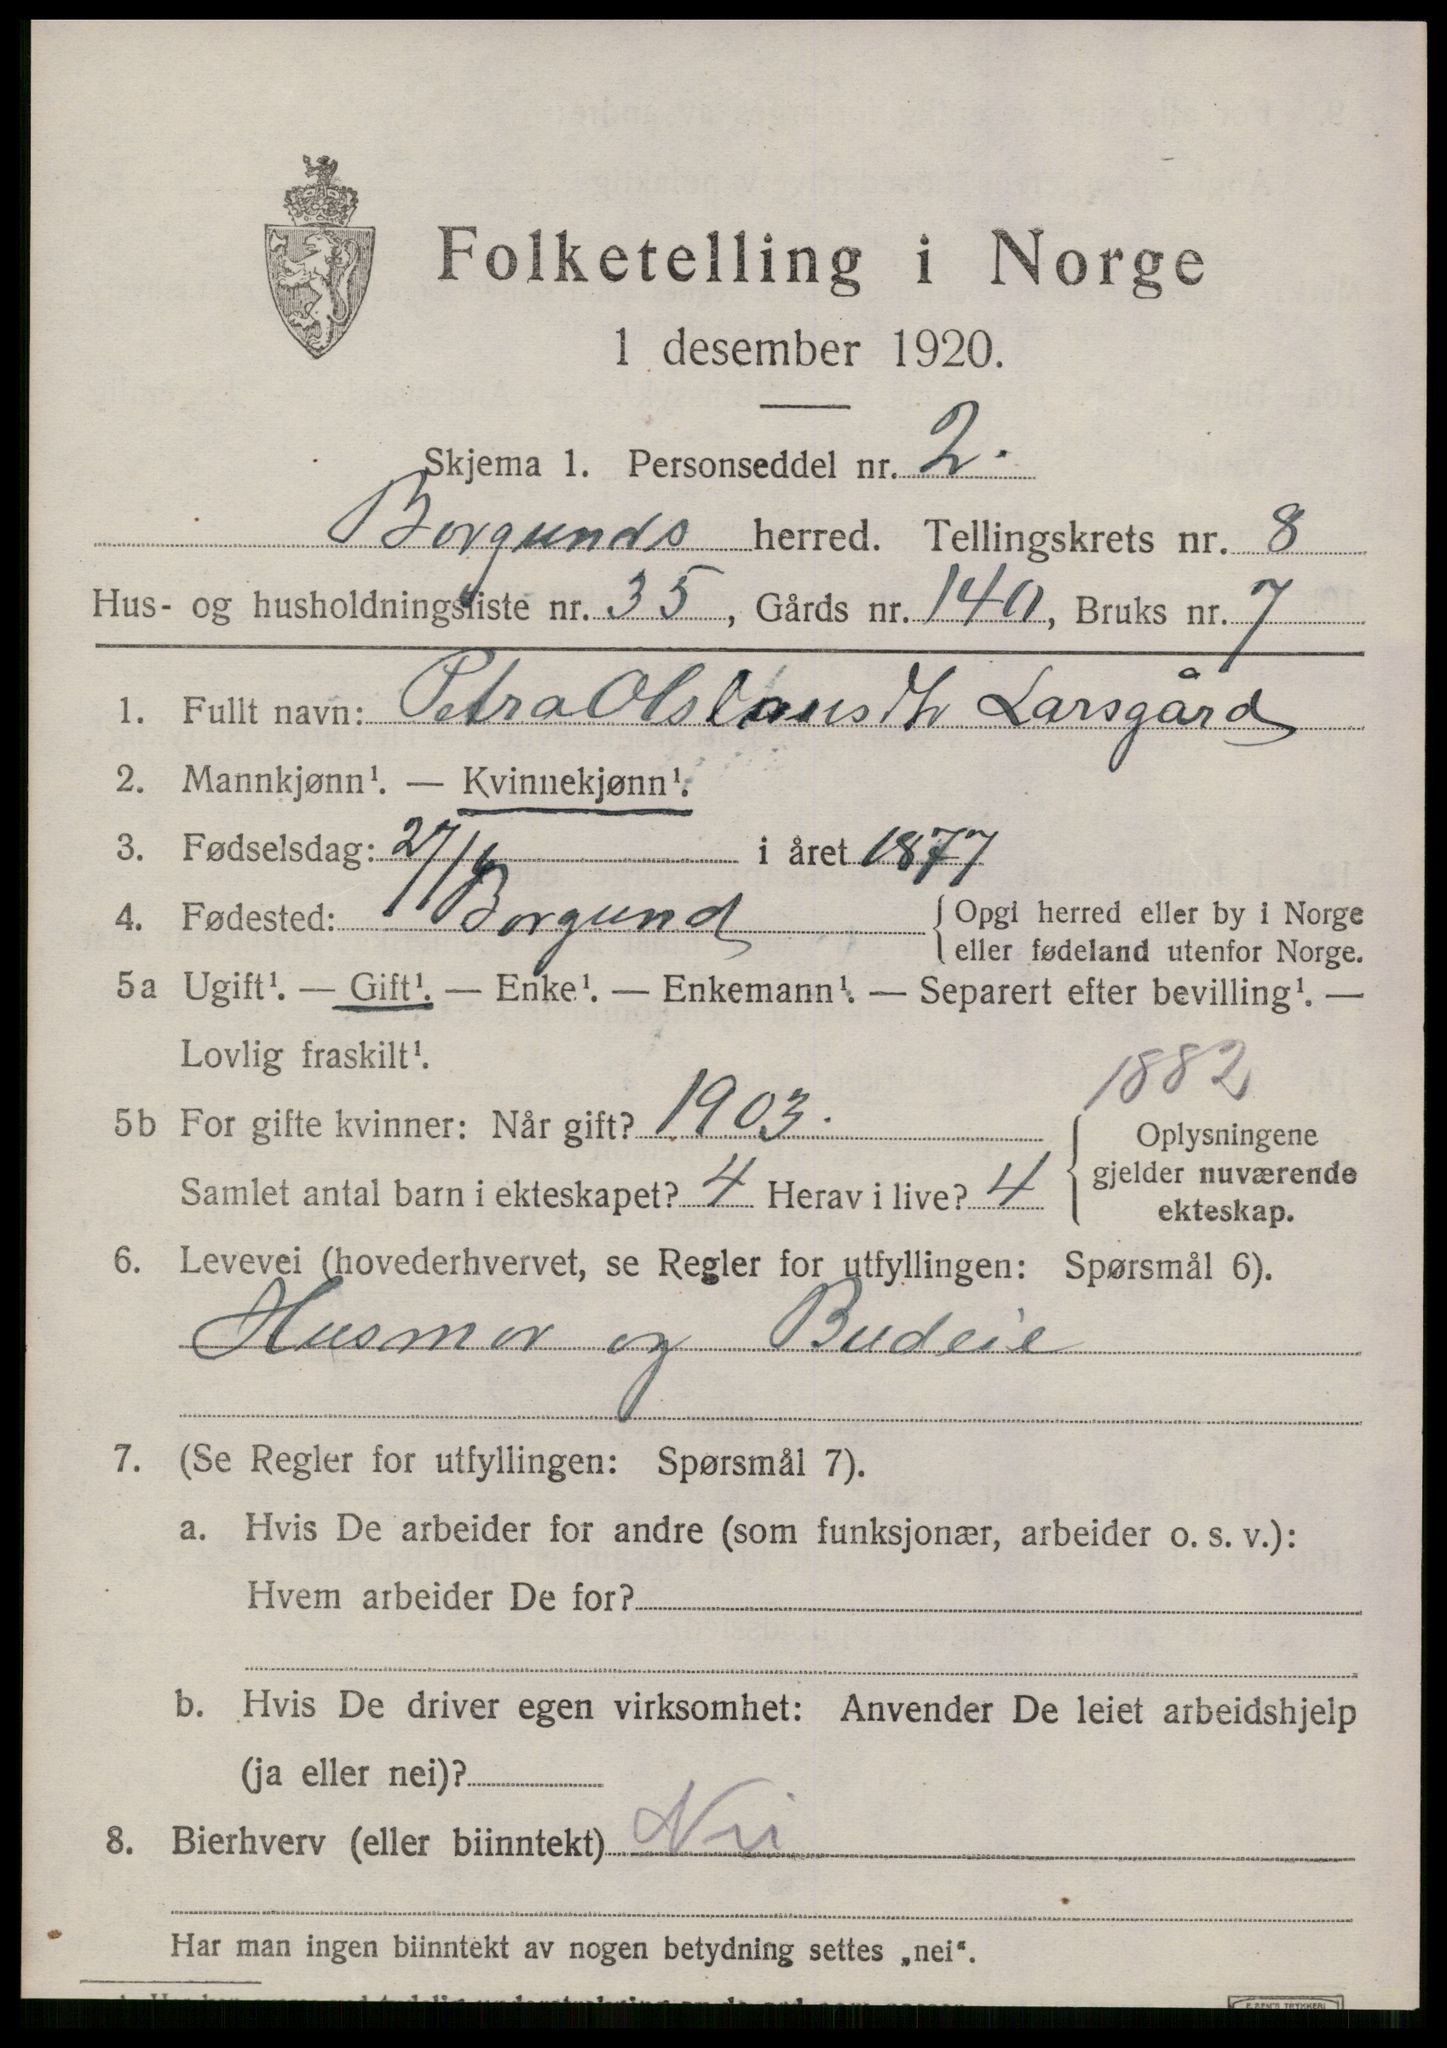 Folketelling i Norge
1 desember 1920.
Skjema 1. Personseddel nr. 2.
Borgunds herred. Tellingskrets nr. 8
Hus- og husholdningsliste nr. 35, Gårds nr. 140, Bruks nr. 7
1. Fullt navn: Petra Larsgård
2. Mannkjønn¹. — Kvinnekjønn¹.
3. Fødselsdag: i året 1877
4. Fødested: Borgund { Opgi herred eller by i Norge
eller fødeland utenfor Norge.
5a Ugift¹. — Gift¹. — Enke¹. — Enkemann¹. — Separert efter bevilling¹. —
Lovlig fraskilt¹.
1882
5b For gifte kvinner: Når gift? 1903.
Samlet antal barn i ekteskapet? 4 Herav i live? 4
Oplysningene
gjelder nuværende
ekteskap.
6. Levevei (hovederhvervet, se Regler for utfyllingen: Spørsmål 6).
Husmor og Budeie
7. (Se Regler for utfyllingen: Spørsmål 7).
a. Hvis De arbeider for andre (som funksjonær, arbeider o. s. v.):
Hvem arbeider De for?
b. Hvis De driver egen virksomhet: Anvender De leiet arbeidshjelp
(ja eller nei)?
8. Bierhverv (eller biinntekt) Nei
Har man ingen biinntekt av nogen betydning settes „nei“.